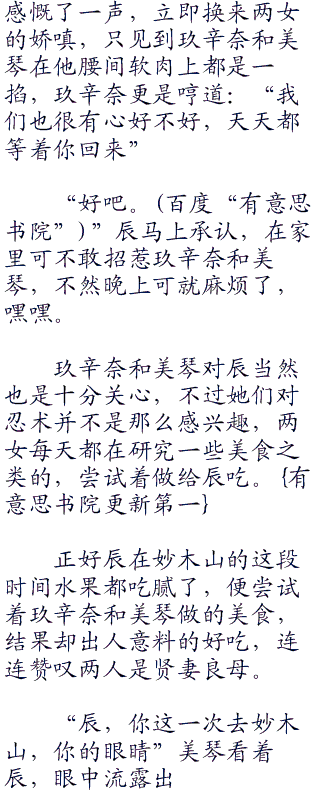 感慨了一声，立即换来两女
的娇嗔，只见到玖辛奈和美
琴在他腰间软肉上都是一
掐，玖辛奈更是哼道：“我
们也很有心好不好，天天都
等着你回来”
“好吧。(百度“有意思
书院”)”辰马上承认，在家
里可不敢招惹玖辛奈和美
琴，不然晚上可就麻烦了，
嘿嘿。
玖辛奈和美琴对辰当然
也是十分关心，不过她们对
忍术并不是那么感兴趣，两
女每天都在研究一些美食之
类的，尝试着做给辰吃。{有
意思书院更新第一}
正好辰在妙木山的这段
时间水果都吃腻了，便尝试
着玖辛奈和美琴做的美食，
结果却出人意料的好吃，连
连赞叹两人是贤妻良母。
“辰，你这一次去妙木
山，你的眼睛”美琴看着
辰，眼中流露出